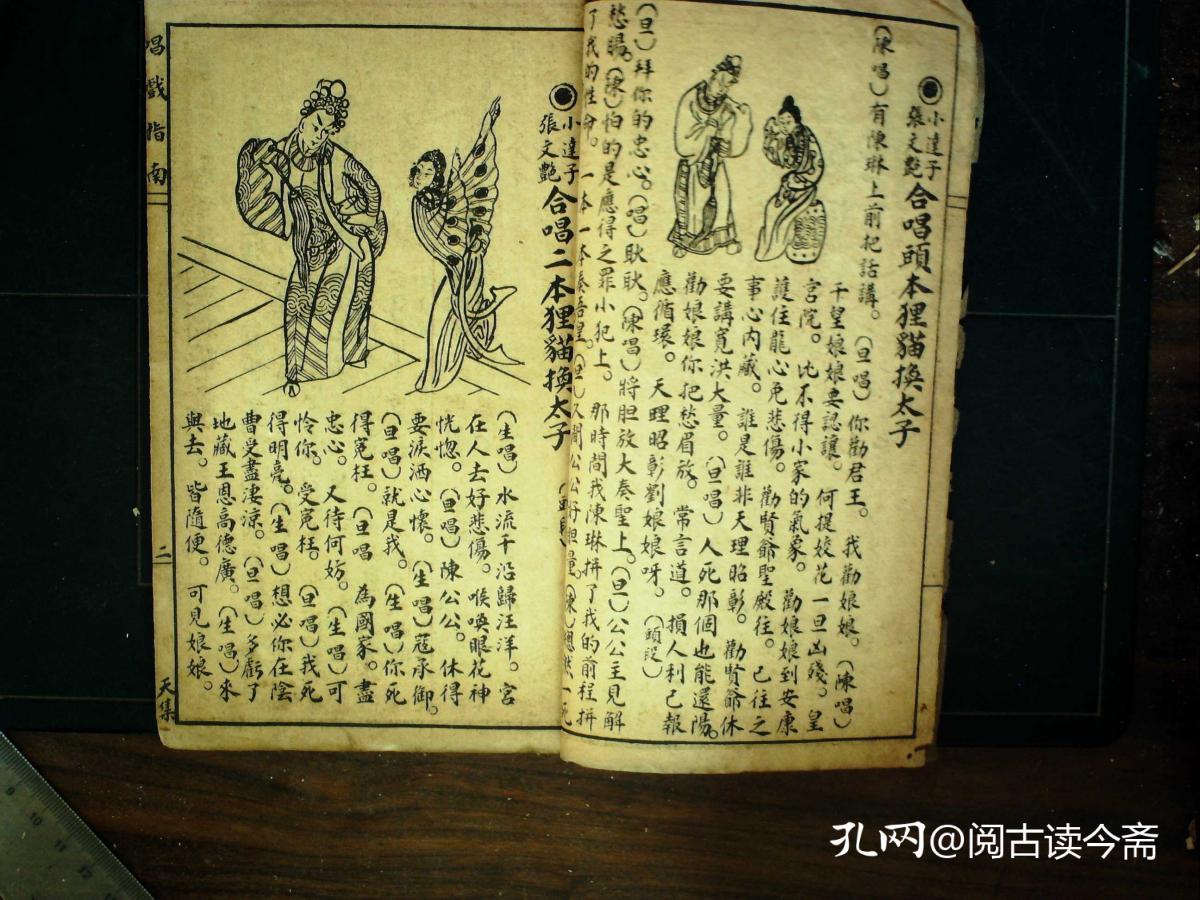 小達子
張文艷
合唱頭本狸貓換太子
(陳唱)有陳琳上前把話講。(旦唱)你勸君王。我勸娘娘。(陳唱)
千望娘娘要認讓。何提姣花一旦凶殘。皇
宮院。比不得小家的氣象。勸娘娘到安康
護住龍心免悲傷。勸賢爺聖殿往。已往之
事心內藏。誰是誰非天理昭彰。勸賢爺休
要講寬洪大量。(旦唱)人死那個也能還陽。
勸娘娘你把愁眉放。常言道。損人利己報
應循環。天理昭彰劉娘娘呀。(頭段)
(旦)拜你的忠心。(唱)耿耿。(陳唱)將胆放大奏聖上。(旦)公公主見解
愁腸。(陳)怕的是應得之罪小犯上。那時間我陳琳拼了我的前程拼
了我的性命。一本一本奏吾皇(旦)久聞公公好胆量。(陳)總然一死
小達子
張文艷
合唱二本狸貓換太子
(生唱)水流千沿歸汪洋。宮
在人去好悲傷。喉喚眼花神
恍惚。(旦唱)陳公公。休得
要淚洒心懷。(生唱)蔻承御。
(旦唱)就是我。(生唱)你死
得冤枉。(旦唱為國家。盡
忠心。又待何妨。(生唱)可
怜你。受冤枉。(旦唱)我死
得明亮。(生唱)想必你在陰
曹受盡凄涼。(旦唱)多虧了
地藏王恩高德廣。(生唱)來
與去。皆隨便。可見娘娘。
唱戲指南
二
天集
9 10 11 12
孔网@阅古读今斋